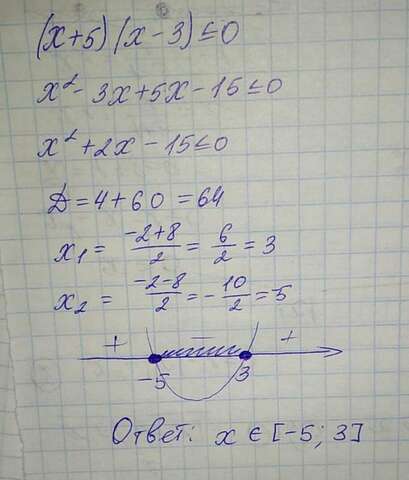 (x+5)(x-3)≤0
x²-3x+5x-15≤0
x²+2x-15≤0
Д=4+60=64
x₁ = \frac{-2+8}{2} = \frac{6}{2} = 3
x₂ = \frac{-2-8}{2} = -\frac{10}{2} = -5
+ - +
-5 3
Ответ: x ∈ [-5; 3]